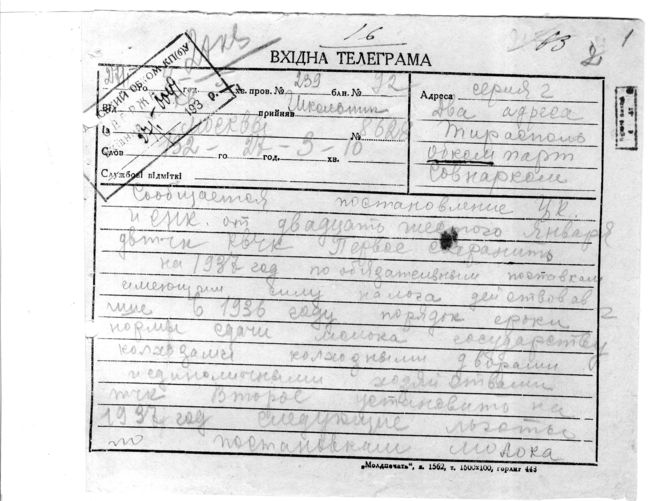 16
1
ВХІДНА ТЕЛЕГРАМА
год. хв. пров. № 239 бл. № 92
Від прийняв
Із Москва № 8628
Слов 352 - 27 го год. 3 - 10 хв.
Службові відмітки
Адреса: серия 2
Два адреса
Тирасполь
Обком парт
Совнарком
193 р.
Сообщается постановление ЦК
и СНК от двадцать шестого января
двтчк квчк Первое сохранить
на 1937 год по обязательным поставкам
имеющим силу налога действовав
шие в 1936 году порядок сроки
нормы сдачи молока государству
колхозами колхозными дворами
и единоличными хозяйствами
тчк Второе установить на
1937 год следующие льготы
по поставкам молока
„Молдпечать", з. 1562, т. 1500х100, горліт 443